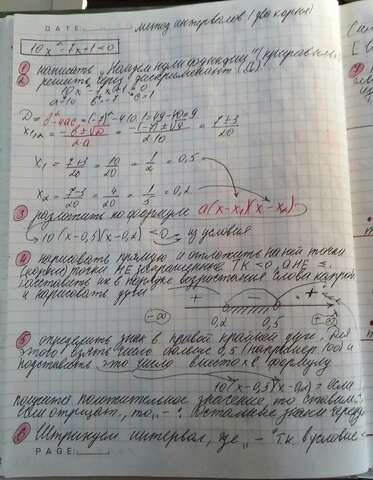 DATE:
метод интервалов (два корня)
10x² - 7x + 1 < 0
① написать „Найдем нули функции“, приравнять
② решить через дискриминант
10x² - 7x + 1 = 0
a = 10 b = -7 c = 1
D = b² - 4ac = (-7)² - 4·10·1 = 49 - 40 = 9
x₁,₂ = -b ± √D / 2a = -(-7) ± √9 / 2·10 = 7 ± 3 / 20
x₁ = 7+3 / 20 = 10 / 20 = 1 / 2 = 0,5
x₂ = 7-3 / 20 = 4 / 20 = 1 / 5 = 0,2
③ разложить по формуле a(x - x₁)(x - x₂)
10(x - 0,5)(x - 0,2) < 0 из условия
④ нарисовать прямую и отложить на ней точки
(корни) точки НЕ закрашенные тк < 0, а НЕ ≤.
расставить их в порядке возрастания слева направо
и нарисовать дуги
+ - +
-∞ 0,2 0,5 +∞
⑤ определить знак в правой крайней дуге. Для
этого взять число больше 0,5 (например 100) и
подставить это число вместо x в формулу
10(x - 0,5)(x - 0,2) = если
получится положительное значение, то ставим +
если отрицат., то „-“. Остальные знаки чередуем
⑥ Штрихуем интервал, где „-“ тк в условие <
PAGE: